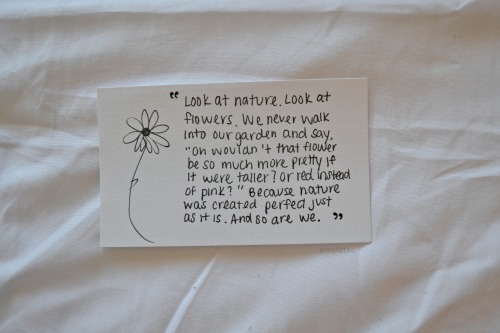 “ Look at nature. Look at
flowers. We never walk
into our garden and say,
"Oh wouldn't that flower
be so much more pretty if
it were taller? Or red instead
of pink?" Because nature
was created perfect just
as it is. And so are we. ”